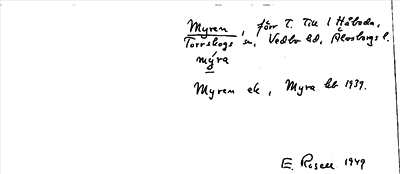 Myren, förr T. till 1 Håboda,
Torrskogs sn, Vedbo hd, Älvsborgs l.
mýra
Myren ek, Myra kb 1939.
E. Rosell 1949